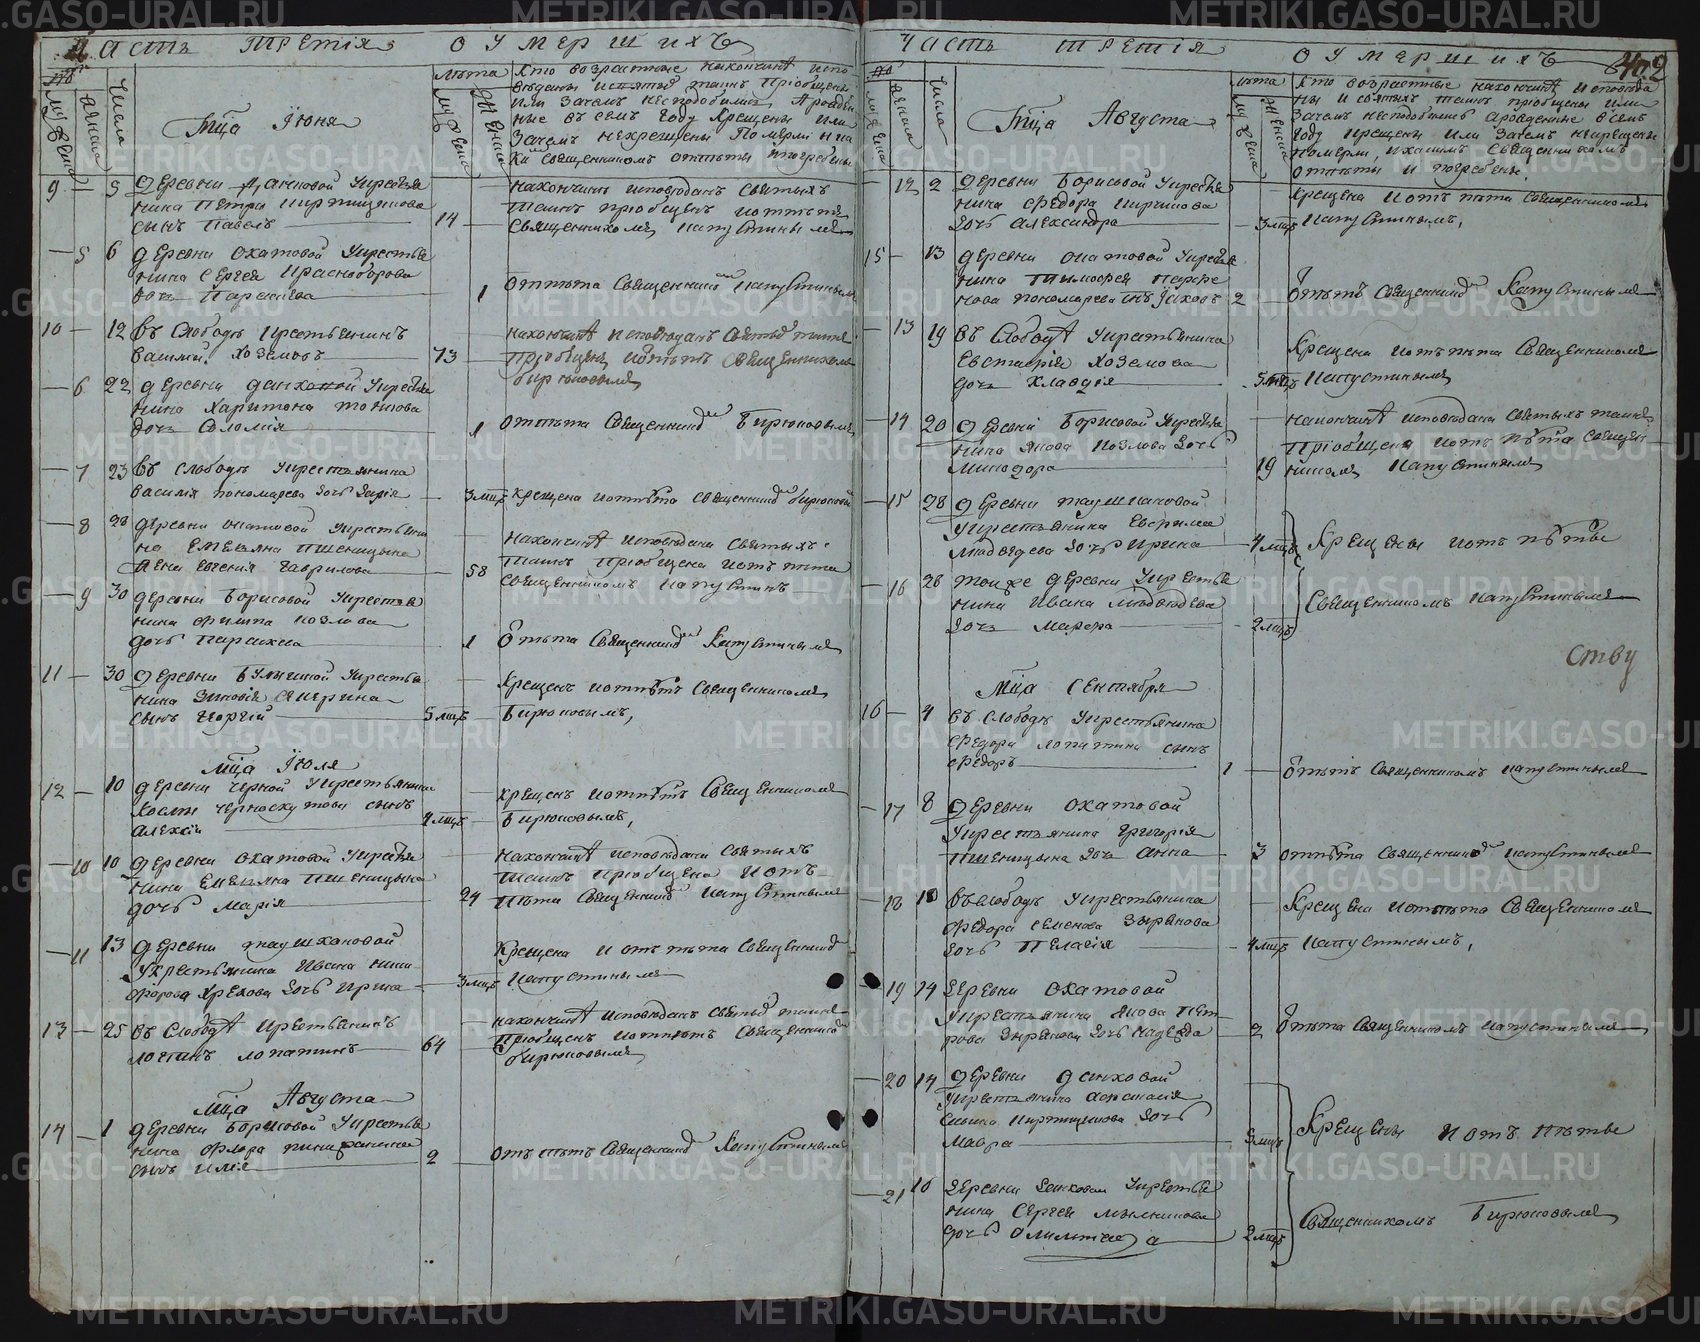 Часть третія
о умершихъ
Мца Іюня
лѣта
Кто возрастные накончинѣ испо
вѣданы исвятыхъ таинъ пріобщены
или зачемъ несподобились, арожден
ные въ семъ году крещены или
зачемъ некрещены померли ика
кимъ священникомъ отпѣты ипогребены
9 5 деревни Данковой укрестья
нина Петра Киртищикова
сынъ Павелъ 14
накончинѣ исповѣданъ святыхъ
таинъ пріобщенъ иотпѣтъ
священникомъ Капустинымъ
5 6 деревни Охатовой укрестья
нина Сергея Красноборова
дочь Параскева 1
отпѣта священникомъ Капустинымъ
10 12 въ слободѣ крестьянинъ
Василій Хоземовъ 73
накончинѣ исповѣданъ святыхъ таинъ
пріобщенъ иотпѣтъ священникомъ
Бирюковымъ
6 22 деревни Данковой укрестья
нина Харитона
дочь Соломія 1
отпѣта священникомъ Бирюковымъ
7 23 въ слободѣ укрестьянина
Василія Пономарева дочь Дарія 3 мцъ
крещена иотпѣта священникомъ Бирюковымъ
8 28 деревни Охатовой укрестьяни
на Емельяна Пшеницына
жена Евгенія Гаврилова 58
накончинѣ исповѣдана святыхъ
таинъ пріобщена иотпѣта
священникомъ Капустинымъ
9 30 деревни Борисовой укрестья
нина Филипа Козлова
дочь Параскева 1
отпѣта священникомъ Капустинымъ
11 30 деревни Булыгиной укрестья
нина Зиновія
сынъ Георгій 5 мцъ
крещенъ иотпѣтъ священникомъ
Бирюковымъ,
Мца Іюля
12 10 деревни Черной укрестьянина
Черноскутова сынъ
Алексій 4 мцъ
крещенъ иотпѣтъ священникомъ
Бирюковымъ,
10 10 деревни Охатовой укрестья
нина Емельяна Пшеницына
дочь Марія 24
накончинѣ исповѣдана святыхъ
таинъ пріобщена иотъ
пѣта священникомъ Капустинымъ
11 13 деревни Таушкановой
укрестьянина Ивана Ники
форова Хрехова дочь Ирина 3 мцъ
крещена и отъ пѣта священникомъ
Капустинымъ
13 25 въ слободѣ крестьянинъ
Логинъ Лопатинъ 64
накончинѣ исповѣданъ святыхъ таинъ
пріобщенъ иотпѣтъ священникомъ
Бирюковымъ
Мца Августа
14 1 деревни Борисовой укрестья
нина Флора
сынъ Илія 2
отъ пѣтъ священникомъ Капустинымъ
Часть третія
о умершихъ
402
Мца Августа
лѣта
Кто возрастные накончинѣ исповѣда
ны и святыхъ таинъ пріобщены или
зачемъ несподобились арожденные всемъ
году крещены или зачемъ некрещены
померли, икакимъ священникомъ
отпѣты и погребены.
12 2 деревни Борисовой укрестья
нина Федора Киршова
дочь Александра 3 мцъ
крещена иотъ пѣта священникомъ
Капустинымъ,
15 13 деревни Охатовой укрестья
нина Тимофея Парфе
нова Пономарева сынъ Іяковъ 2
отпѣтъ священникомъ Капустинымъ
13 19 въ слободѣ укрестьянина
Евстафія Хоземова
дочь Клавдія 5 мцъ
крещена иотъ пѣта священникомъ
Капустинымъ
14 20 деревни Борисовой укрестья
нина Якова Козлова дочь
Минодора 19
накончинѣ исповѣдана святыхъ таинъ
пріобщена иотъ пѣта священ
никомъ Капустинымъ
15 28 деревни Таушкановой
укрестьянина Евфима
Медведева дочь Ирина 4 мцъ
16 28 тоиже деревни укрестья
нина Ивана Медведева
дочь Марфа 2 мцъ
крещены иотъ пѣты
священникомъ Капустинымъ
ству
Мца Сентября
16 4 въ слободѣ укрестьянина
Федора Лопатина сынъ
Федоръ 1
отпѣтъ священникомъ Капустинымъ
17 8 деревни Охатовой
укрестьянина Григорія
Пшеницына дочь Анна 3
отпѣта священникомъ Капустинымъ
18 18 въ слободѣ укрестьянина
Федора Семенова Зырянова
дочь Пелагія 4 мцъ
крещена иотпѣта священникомъ
Капустинымъ,
19 14 деревни Охатовой
укрестьянина Якова Пет
рова Зырянова дочь Надежда 2
отпѣта священникомъ Капустинымъ
20 14 деревни Данковой
укрестьянина Афанасія
Киртищикова дочь
Мавра 3 мцъ
21 16 деревни Данковой укрестья
нина Сергея Мельникова
дочь Олимпіада 2 мцъ
крещены иотъ пѣты
священникомъ Бирюковымъ
METRIKI.GASO-URAL.RU